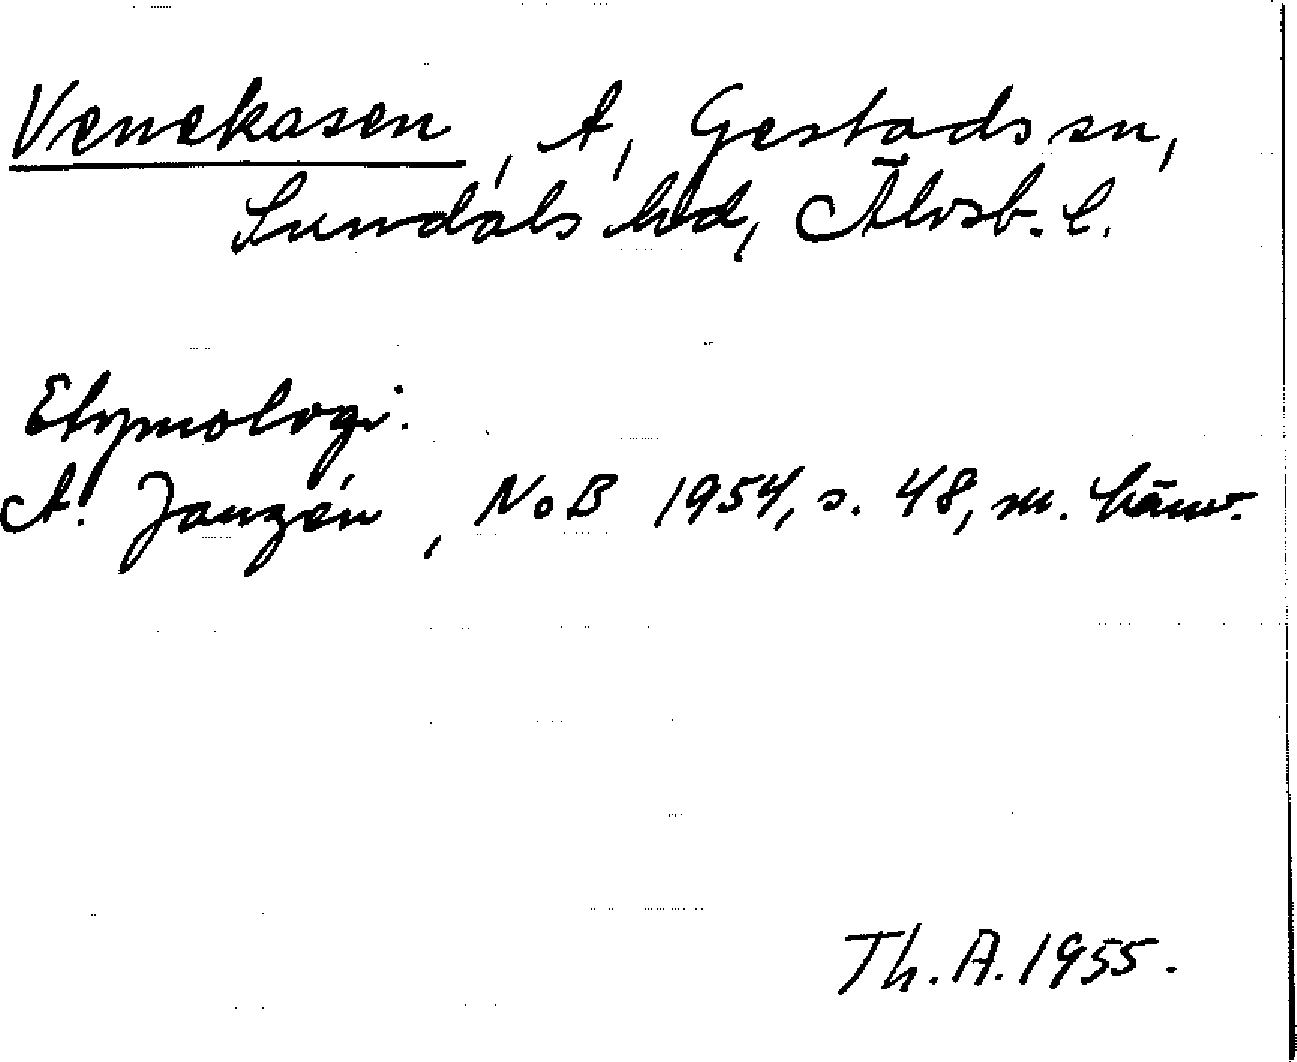 Venekasen, A, Gestads sn,
Sundals hd, Älvsb. l.
Etymologi.
A. Janzén, NoB 1954, s. 48, m. hänv.
Th. A. 1955.